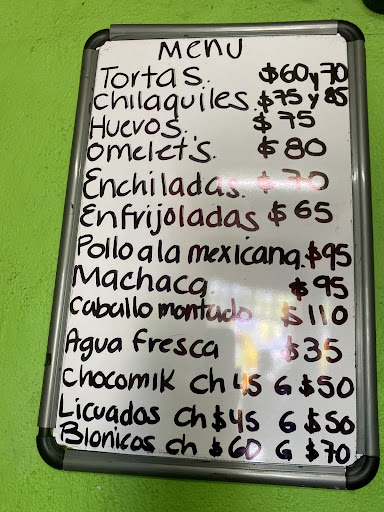 Menu
Tortas. $60y70
chilaquiles. $75 y 85
Huevos. $75
omelet's. $80
Enchiladas. $70
Enfrijoladas $65
Pollo ala mexicana. $95
Machaca $95
Caballo montado $110
Agua fresca $35
Chocomik ch 45 G $50
Licuados ch $45 G $50
Bionicos ch $60 G $70